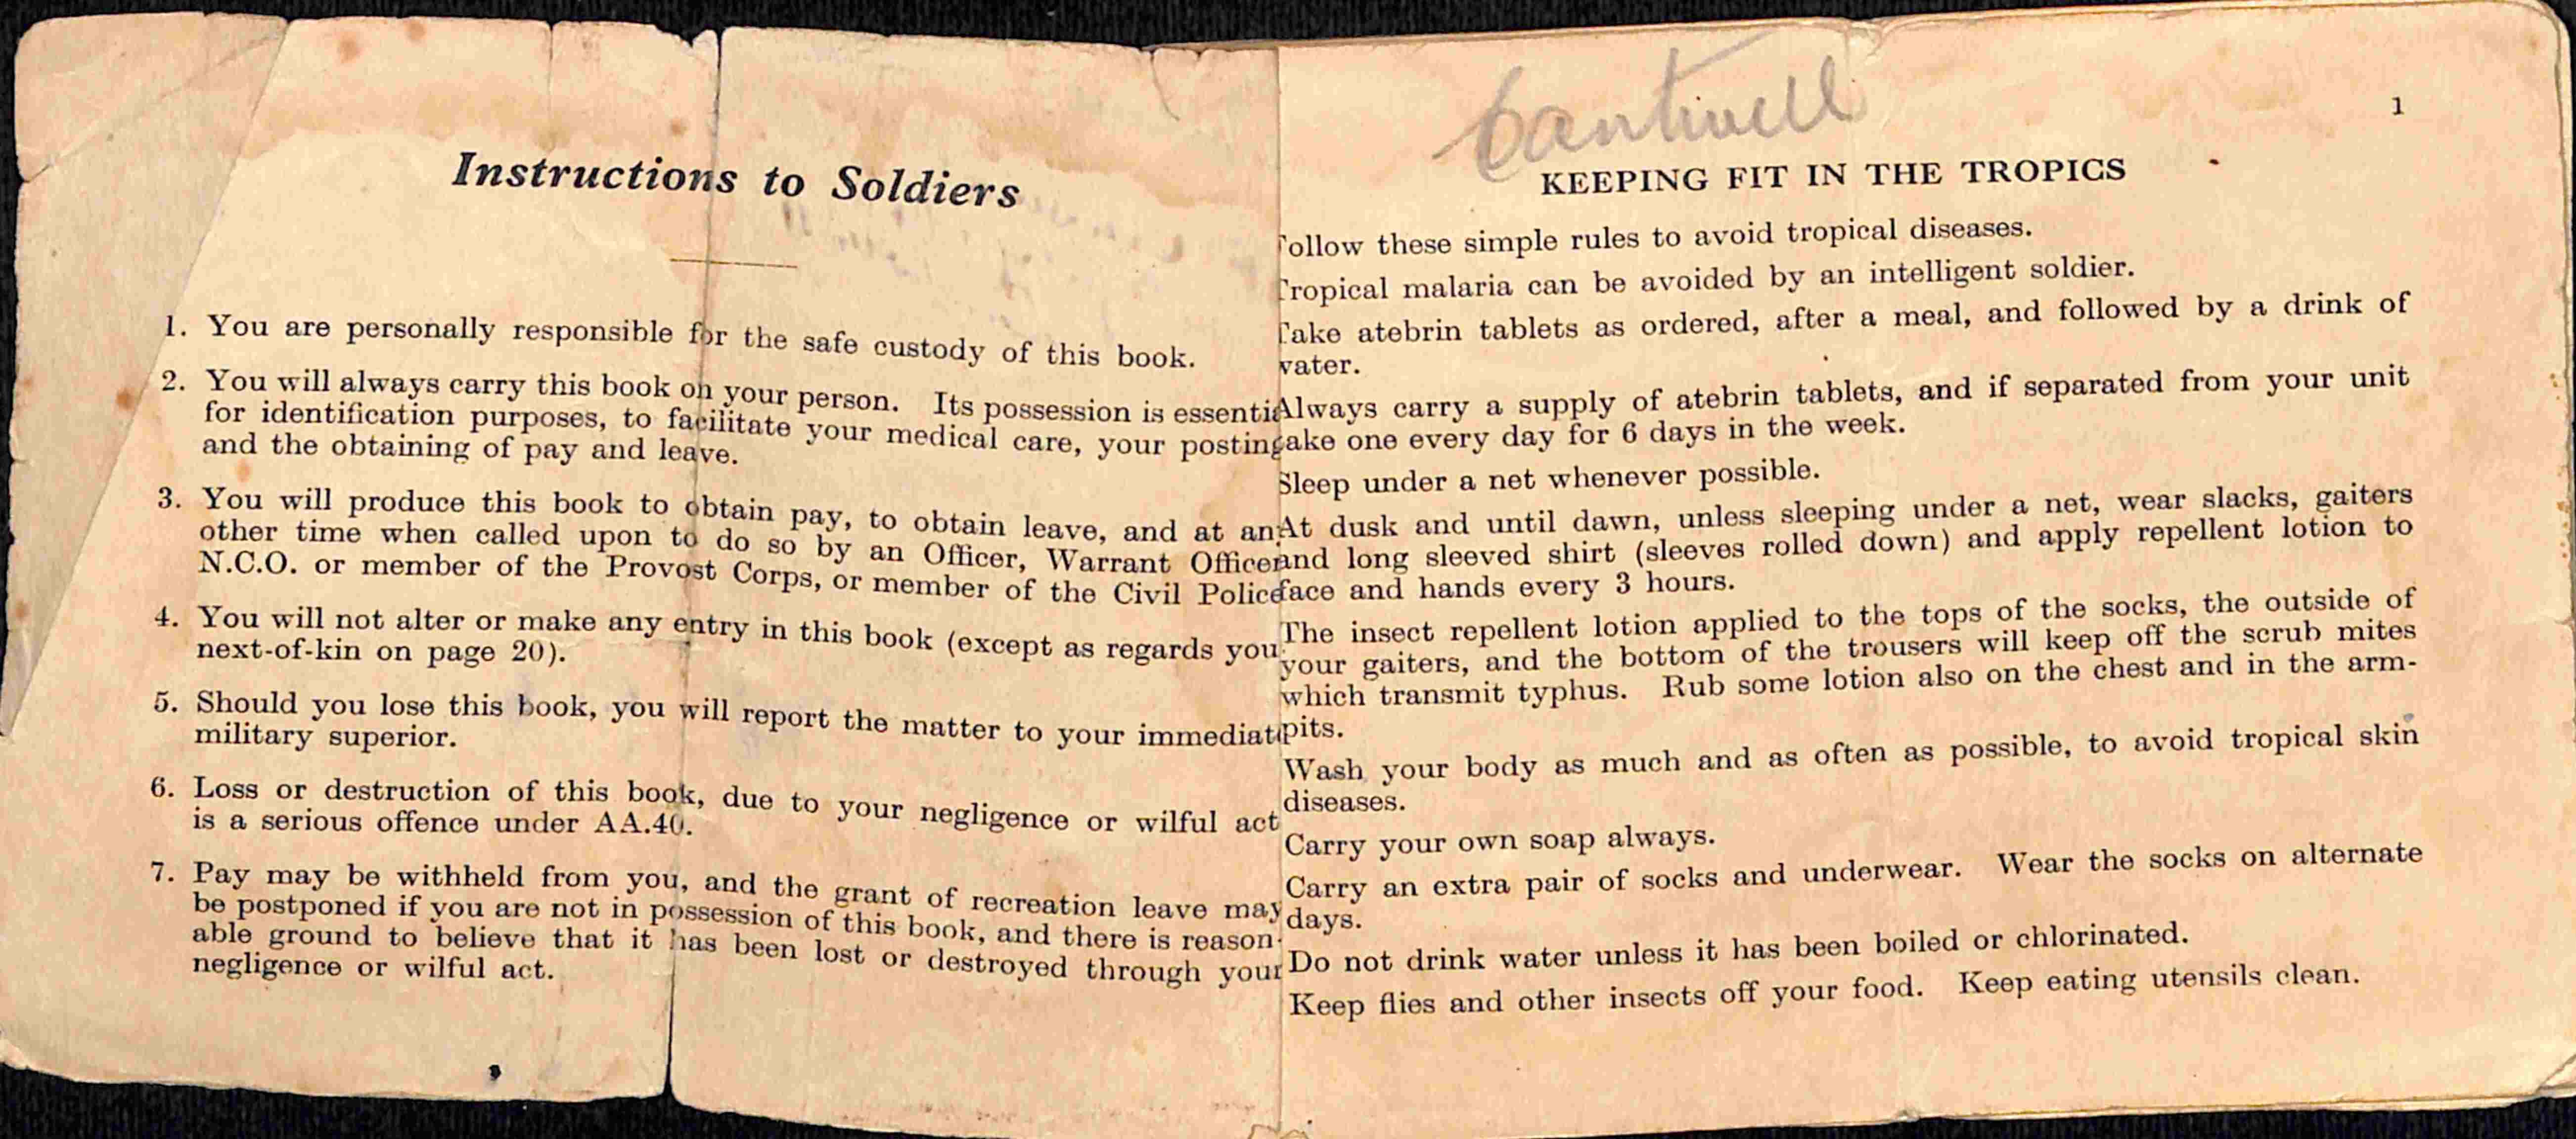 Instructions to Soldiers
1. You are personally responsible for the safe custody of this book.
2. You will always carry this book on your person. Its possession is essentia
for identification purposes, to facilitate your medical care, your posting
and the obtaining of pay and leave.
3. You will produce this book to obtain pay, to obtain leave, and at an
other time when called upon to do so by an Officer, Warrant Officer
N.C.O. or member of the Provost Corps, or member of the Civil Police
4. You will not alter or make any entry in this book (except as regards you
next-of-kin on page 20).
5. Should you lose this book, you will report the matter to your immediat
military superior.
6. Loss or destruction of this book, due to your negligence or wilful act
is a serious offence under AA.40.
7. Pay may be withheld from you, and the grant of recreation leave may
be postponed if you are not in possession of this book, and there is reason-
able ground to believe that it has been lost or destroyed through your
negligence or wilful act.
Cantwell
1
KEEPING FIT IN THE TROPICS
ollow these simple rules to avoid tropical diseases.
Tropical malaria can be avoided by an intelligent soldier.
Take atebrin tablets as ordered, after a meal, and followed by a drink of
water.
Always carry a supply of atebrin tablets, and if separated from your unit
ake one every day for 6 days in the week.
Sleep under a net whenever possible.
At dusk and until dawn, unless sleeping under a net, wear slacks, gaiters
and long sleeved shirt (sleeves rolled down) and apply repellent lotion to
face and hands every 3 hours.
The insect repellent lotion applied to the tops of the socks, the outside of
your gaiters, and the bottom of the trousers will keep off the scrub mites
which transmit typhus. Rub some lotion also on the chest and in the arm-
pits.
Wash your body as much and as often as possible, to avoid tropical skin
diseases.
Carry your own soap always.
Carry an extra pair of socks and underwear. Wear the socks on alternate
days.
Do not drink water unless it has been boiled or chlorinated.
Keep flies and other insects off your food. Keep eating utensils clean.